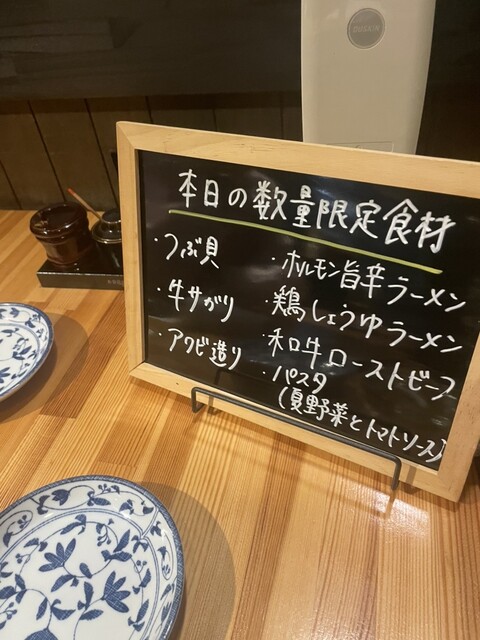 本日の数量限定食材
・つぶ貝
・牛サガリ
・アワビ造り
・ホルモン旨辛ラーメン
・鶏しょうゆラーメン
・和牛ローストビーフ
・パスタ
(夏野菜とトマトソース)